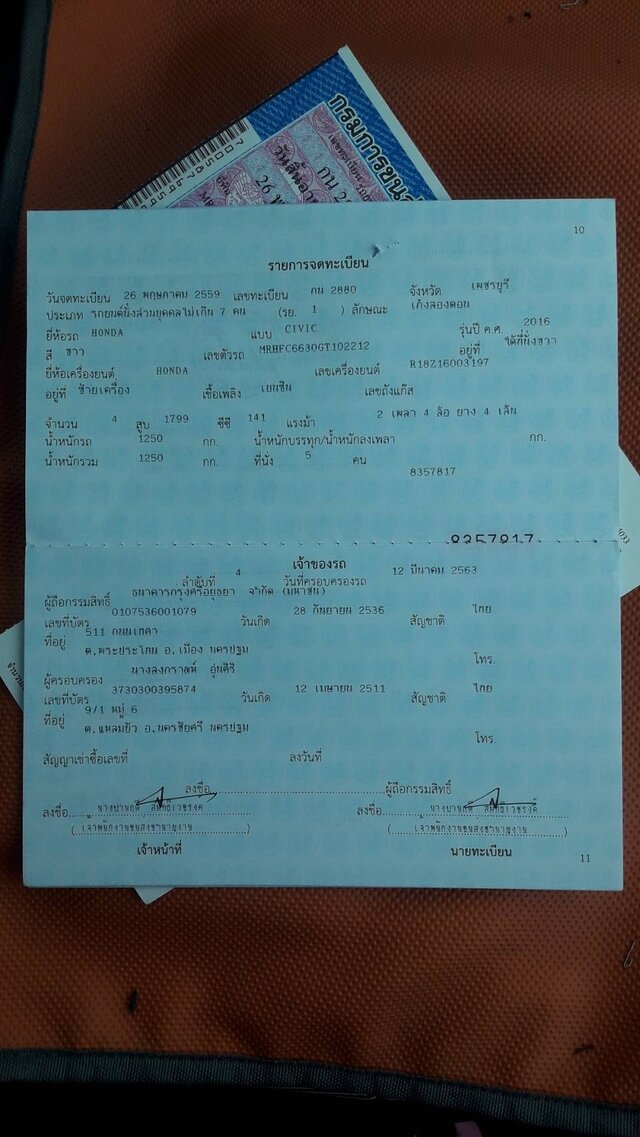 กรมการขนส
เลขทะเบียน
กน 2
วันสิ้นอา
26 พ
10
รายการจดทะเบียน
วันจดทะเบียน 26 พฤษภาคม 2559 เลขทะเบียน กน 2880 จังหวัด เพชรบุรี
ประเภท รถยนต์นั่งส่วนบุคคลไม่เกิน 7 คน (รย. 1 ) ลักษณะ เก๋งสองตอน
ยี่ห้อรถ HONDA แบบ CIVIC รุ่นปี ค.ศ. 2016
สี ขาว เลขตัวรถ MRHFC6630GT102212 อยู่ที่ ใต้ที่นั่งขวา
ยี่ห้อเครื่องยนต์ HONDA เลขเครื่องยนต์ R18Z16003197
อยู่ที่ ซ้ายเครื่อง เชื้อเพลิง เบนซิน เลขถังแก๊ส
จำนวน 4 สูบ 1799 ซีซี 141 แรงม้า 2 เพลา 4 ล้อ ยาง 4 เส้น
น้ำหนักรถ 1250 กก. น้ำหนักบรรทุก/น้ำหนักลงเพลา กก.
น้ำหนักรวม 1250 กก. ที่นั่ง 5 คน
8357817
8357817
เจ้าของรถ
ลำดับที่ 4 วันที่ครอบครองรถ 12 มีนาคม 2563
ผู้ถือกรรมสิทธิ์ ธนาคารกรุงศรีอยุธยา จำกัด (มหาชน)
เลขที่บัตร 0107536001079 วันเกิด 28 กันยายน 2536 สัญชาติ ไทย
ที่อยู่ 511 ถนนเทศา
ต.พระประโทน อ.เมือง นครปฐม โทร.
ผู้ครอบครอง นางสงกรานต์ อุ่นศิริ
เลขที่บัตร 3730300395874 วันเกิด 12 เมษายน 2511 สัญชาติ ไทย
ที่อยู่ 9/1 หมู่ 6
ต.แหลมบัว อ.นครชัยศรี นครปฐม โทร.
สัญญาเช่าซื้อเลขที่ ลงวันที่
ลงชื่อ ผู้ถือกรรมสิทธิ์
ลงชื่อ ลงชื่อ
(เจ้าพนักงานขนส่งชำนาญงาน) (เจ้าพนักงานขนส่งชำนาญงาน)
เจ้าหน้าที่ นายทะเบียน
11